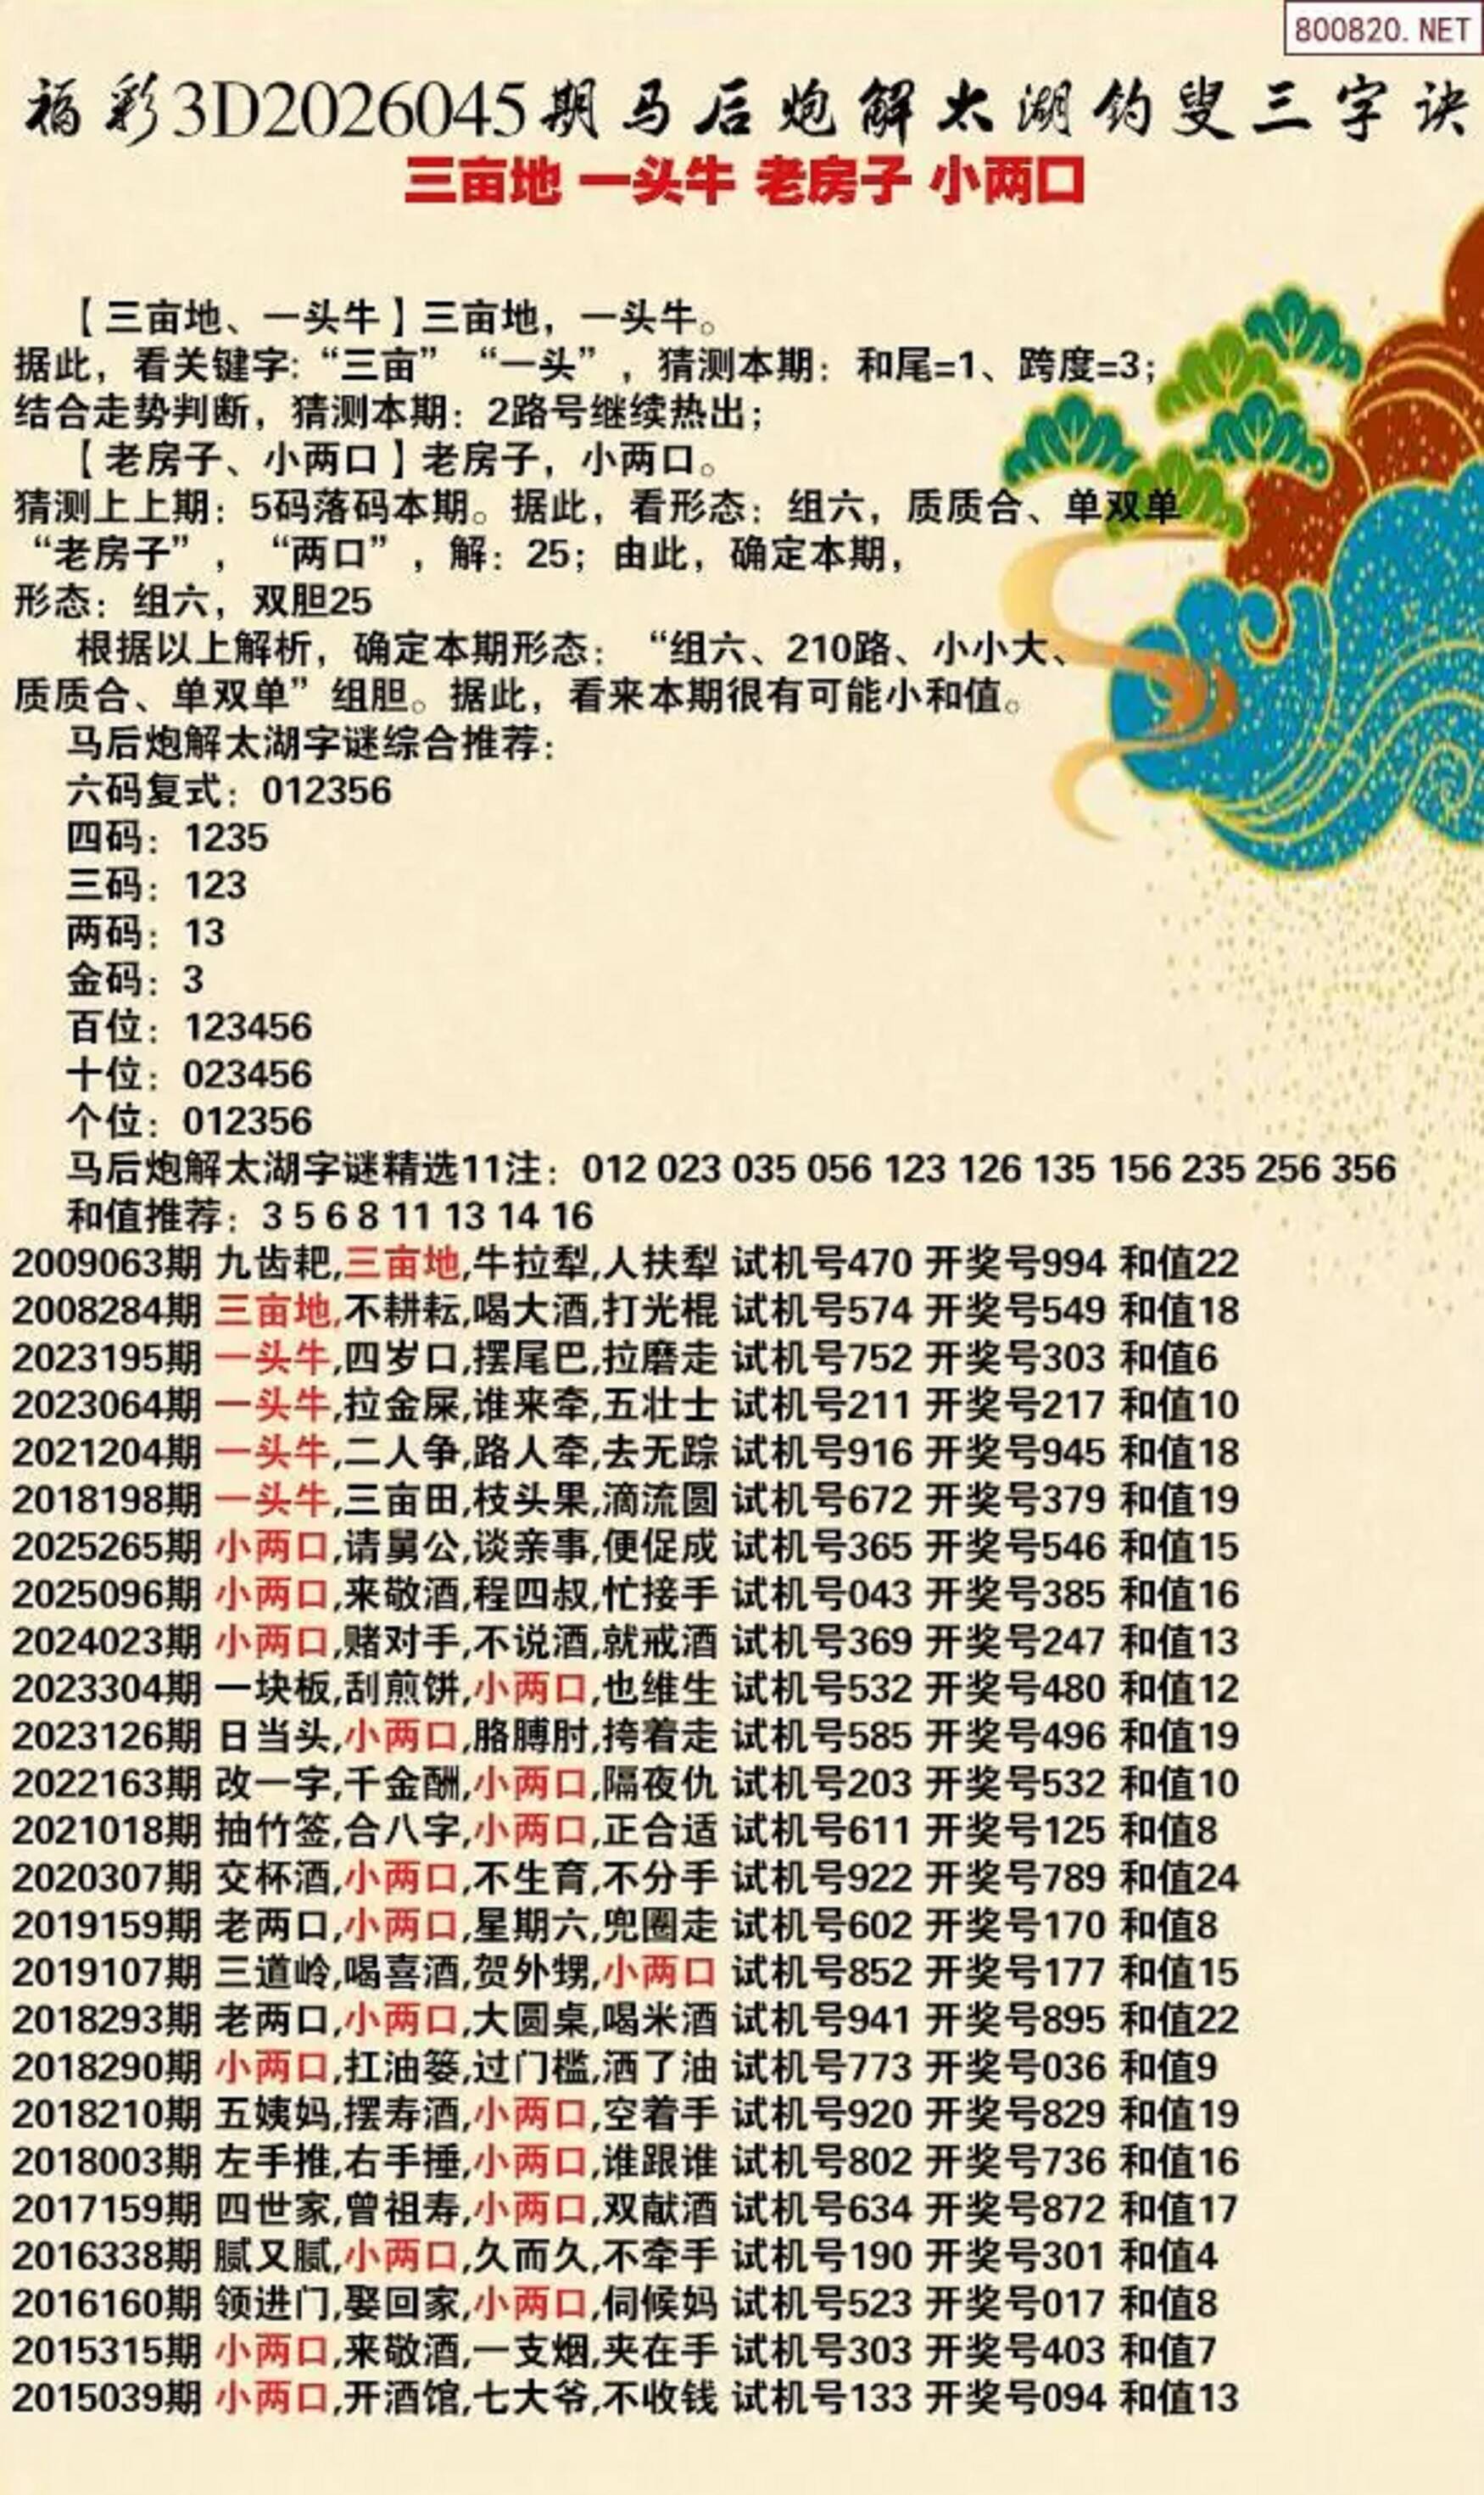 800820.NET
福彩3D2026045期马后炮解太湖钓叟三字诀
三亩地 一头牛 老房子 小两口
【三亩地、一头牛】三亩地，一头牛。
据此，看关键字：“三亩”“一头”，猜测本期：和尾=1、跨度=3；
结合走势判断，猜测本期：2路号继续热出；
【老房子、小两口】老房子，小两口。
猜测上上期：5码落码本期。据此，看形态：组六，质质合、单双单
“老房子”，“两口”，解：25；由此，确定本期，
形态：组六，双胆25
根据以上解析，确定本期形态：“组六、210路、小小大、
质质合、单双单”组胆。据此，看来本期很有可能小和值。
马后炮解太湖字谜综合推荐：
六码复式：012356
四码：1235
三码：123
两码：13
金码：3
百位：123456
十位：023456
个位：012356
马后炮解太湖字谜精选11注：012 023 035 056 123 126 135 156 235 256 356
和值推荐：3 5 6 8 11 13 14 16
2009063期 九齿耙,三亩地,牛拉犁,人扶犁 试机号470 开奖号994 和值22
2008284期 三亩地,不耕耘,喝大酒,打光棍 试机号574 开奖号549 和值18
2023195期 一头牛,四岁口,摆尾巴,拉磨走 试机号752 开奖号303 和值6
2023064期 一头牛,拉金屎,谁来牵,五壮士 试机号211 开奖号217 和值10
2021204期 一头牛,二人争,路人牵,去无踪 试机号916 开奖号945 和值18
2018198期 一头牛,三亩田,枝头果,滴流圆 试机号672 开奖号379 和值19
2025265期 小两口,请舅公,谈亲事,便促成 试机号365 开奖号546 和值15
2025096期 小两口,来敬酒,程四叔,忙接手 试机号043 开奖号385 和值16
2024023期 小两口,赌对手,不说酒,就戒酒 试机号369 开奖号247 和值13
2023304期 一块板,刮煎饼,小两口,也维生 试机号532 开奖号480 和值12
2023126期 日当头,小两口,胳膊肘,挎着走 试机号585 开奖号496 和值19
2022163期 改一字,千金酬,小两口,隔夜仇 试机号203 开奖号532 和值10
2021018期 抽竹签,合八字,小两口,正合适 试机号611 开奖号125 和值8
2020307期 交杯酒,小两口,不生育,不分手 试机号922 开奖号789 和值24
2019159期 老两口,小两口,星期六,兜圈走 试机号602 开奖号170 和值8
2019107期 三道岭,喝喜酒,贺外甥,小两口 试机号852 开奖号177 和值15
2018293期 老两口,小两口,大圆桌,喝米酒 试机号941 开奖号895 和值22
2018290期 小两口,扛油篓,过门槛,洒了油 试机号773 开奖号036 和值9
2018210期 五姨妈,摆寿酒,小两口,空着手 试机号920 开奖号829 和值19
2018003期 左手推,右手捶,小两口,谁跟谁 试机号802 开奖号736 和值16
2017159期 四世家,曾祖寿,小两口,双献酒 试机号634 开奖号872 和值17
2016338期 腻又腻,小两口,久而久,不牵手 试机号190 开奖号301 和值4
2016160期 领进门,娶回家,小两口,伺候妈 试机号523 开奖号017 和值8
2015315期 小两口,来敬酒,一支烟,夹在手 试机号303 开奖号403 和值7
2015039期 小两口,开酒馆,七大爷,不收钱 试机号133 开奖号094 和值13